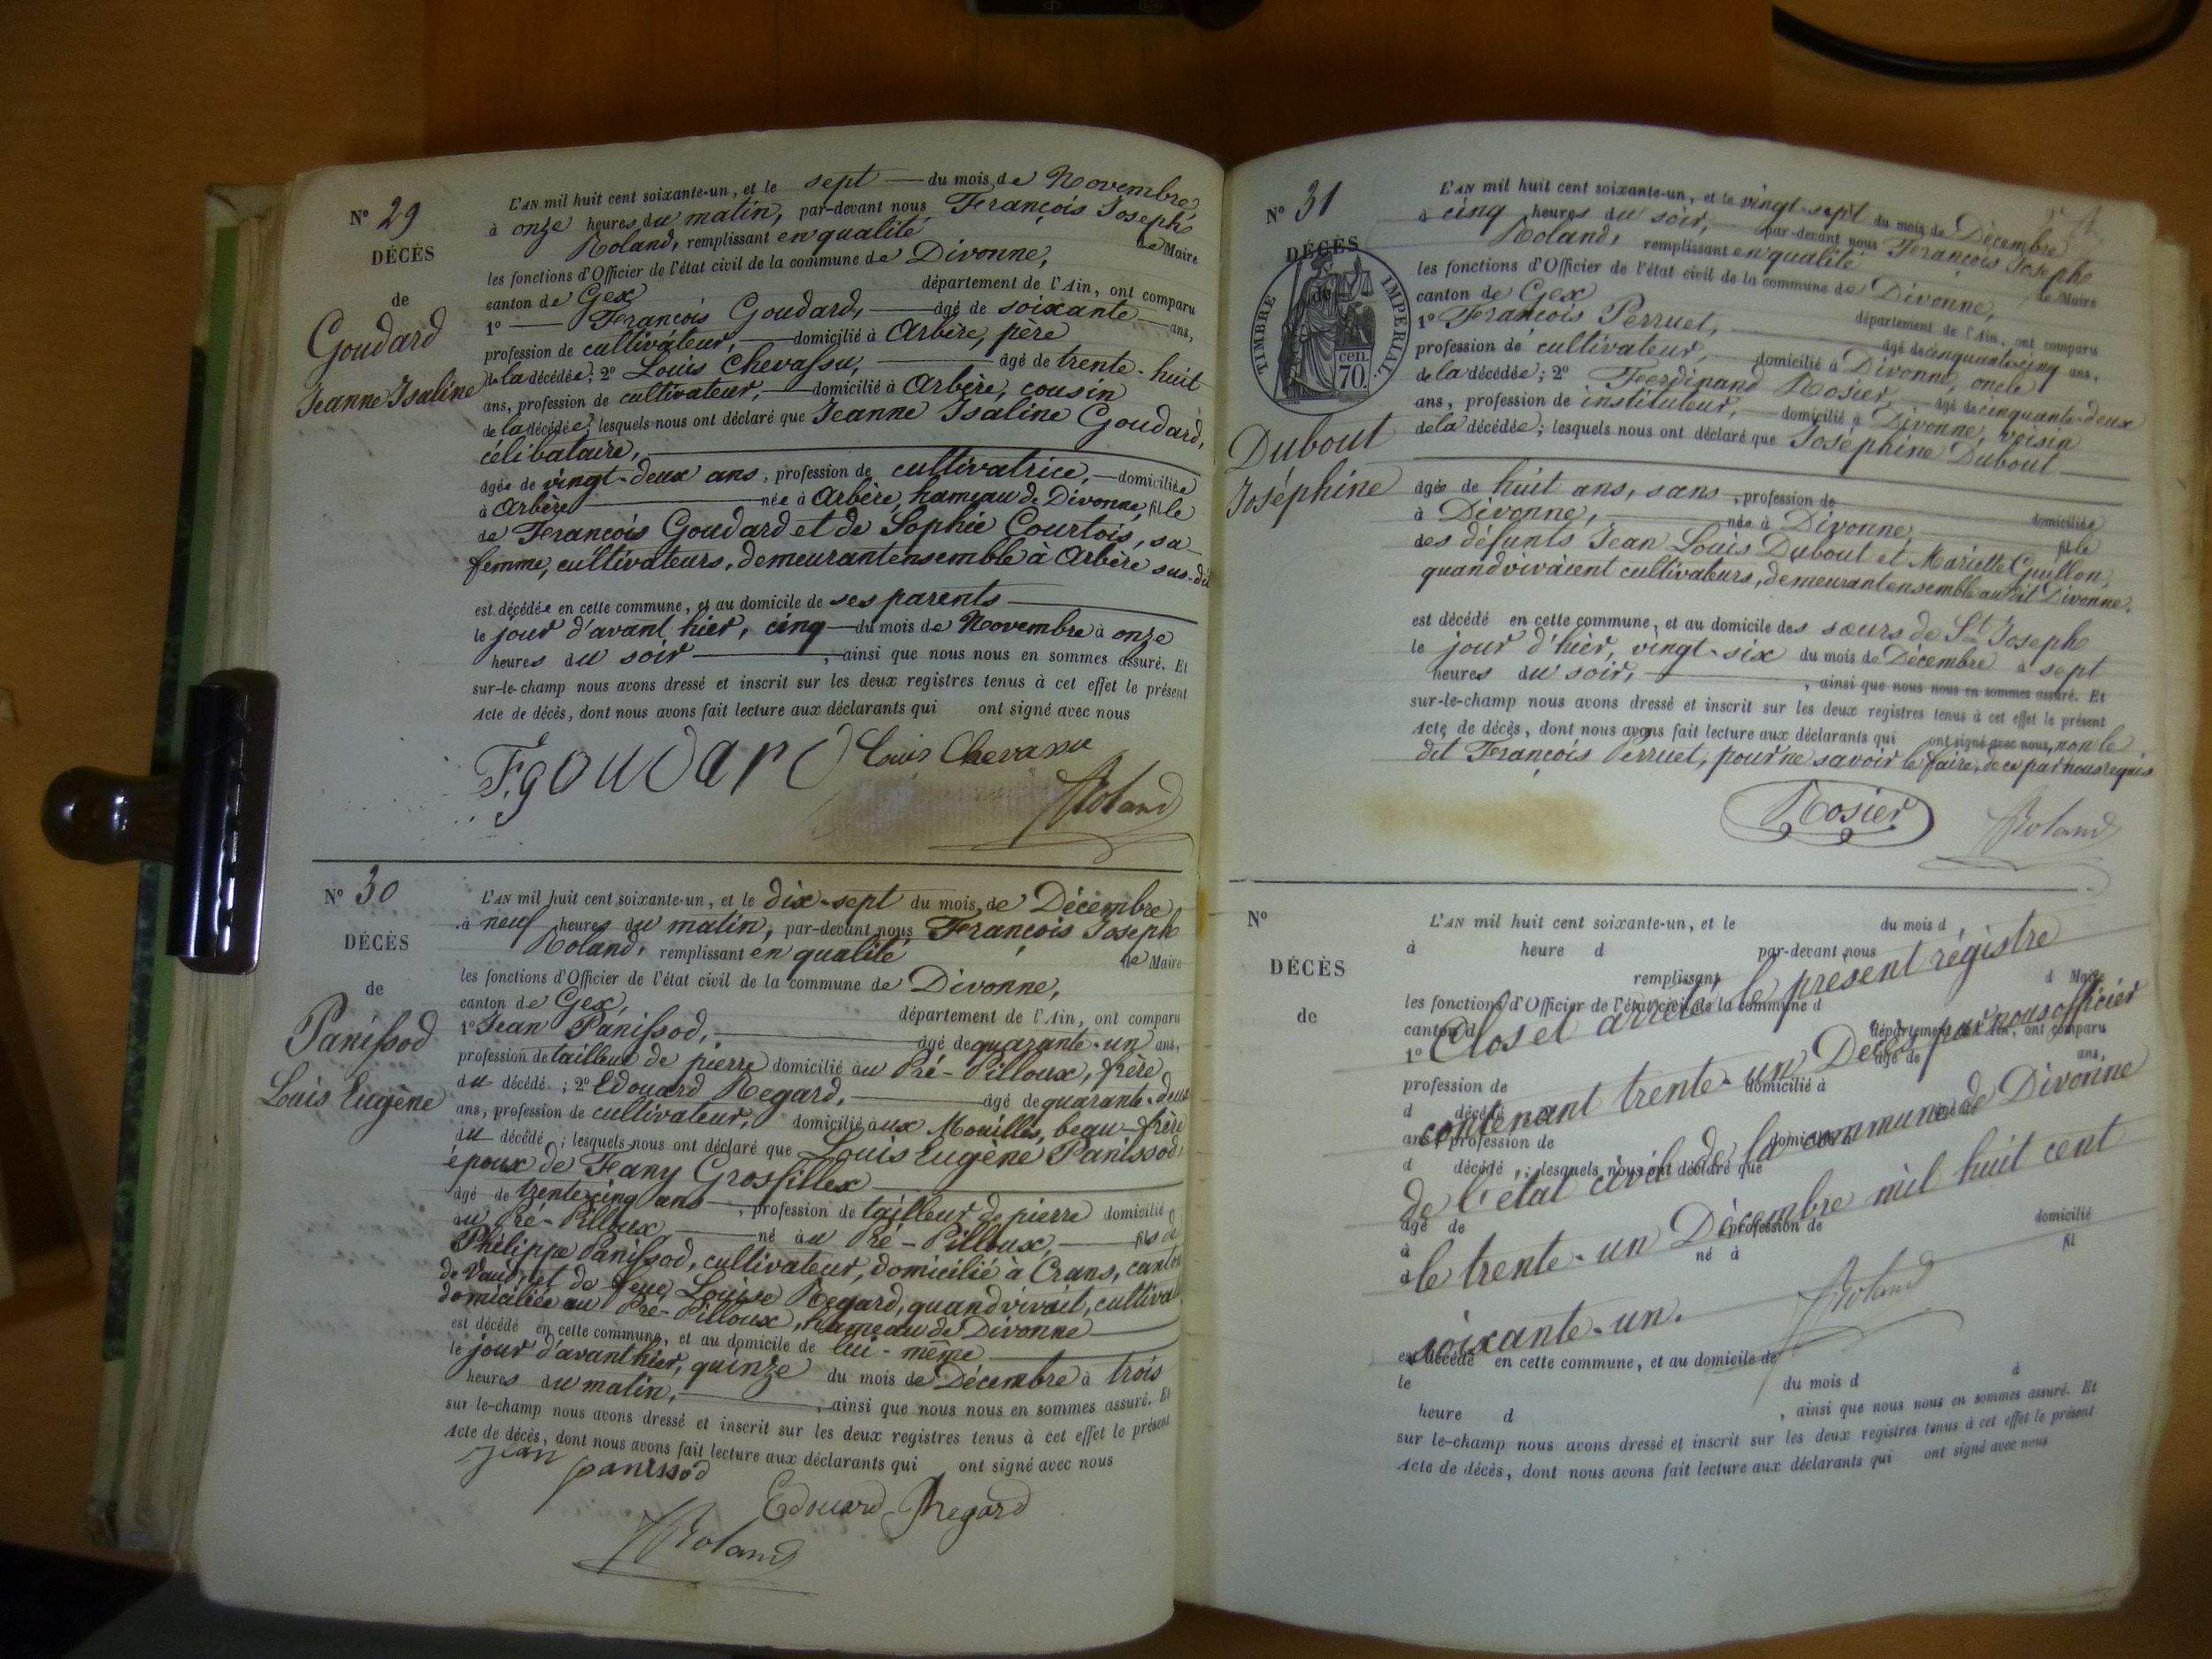 N° 29
DÉCÈS
de
Goudard
Jeanne Isaline
L'AN mil huit cent soixante-un, et le sept du mois de Novembre
à onze heures du matin, par-devant nous François Joseph
Roland, remplissant en qualité de Maire
les fonctions d'Officier de l'état civil de la commune de Divonne,
canton de Gex département de l'Ain, ont comparu
1° François Goudard, âgé de soixante ans,
profession de cultivateur, domicilié à Arbère, père
de la décédée; 2° Louis Chevassu, âgé de trente-huit
ans, profession de cultivateur, domicilié à Arbère, cousin
de la décédée; lesquels nous ont déclaré que Jeanne Isaline Goudard,
célibataire,
âgée de vingt-deux ans, profession de cultivatrice, domiciliée
à Arbère née à Arbère, hameau de Divonne, fille
de François Goudard et de Sophie Courtois, sa
femme, cultivateurs, demeurant ensemble à Arbère sus-dit
est décédée en cette commune, et au domicile de ses parents
le jour d'avant hier, cinq du mois de Novembre à onze
heures du soir, ainsi que nous nous en sommes assuré. Et
sur-le-champ nous avons dressé et inscrit sur les deux registres tenus à cet effet le présent
Acte de décès, dont nous avons fait lecture aux déclarants qui ont signé avec nous
F. goudard Louis Chevassu
Roland
N° 30
DÉCÈS
de
Panissod
Louis Eugène
L'AN mil huit cent soixante-un, et le dix-sept du mois de Décembre
à neuf heures du matin, par-devant nous François Joseph
Roland, remplissant en qualité de Maire
les fonctions d'Officier de l'état civil de la commune de Divonne,
canton de Gex, département de l'Ain, ont comparu
1° Jean Panissod, âgé de quarante-un ans,
profession de tailleur de pierre domicilié au Pré-Pilloux, frère
du décédé; 2° Edouard Regard, âgé de quarante-deux
ans, profession de cultivateur, domicilié aux Mouilles, beau-frère
du décédé; lesquels nous ont déclaré que Louis Eugène Panissod,
époux de Fany Grosfillex
âgé de trente cinq ans, profession de tailleur de pierre domicilié
au Pré-Pilloux né au Pré-Pilloux, fils de
Philippe Panissod, cultivateur, domicilié à Crans, canton
de Vaud, et de feue Louise Regard, quand vivait, cultiva
domiciliée au Pré-Pilloux, hameau de Divonne
est décédé en cette commune, et au domicile de lui-même
le jour d'avant hier, quinze du mois de Décembre à trois
heures du matin, ainsi que nous nous en sommes assuré. Et
sur le-champ nous avons dressé et inscrit sur les deux registres tenus à cet effet le présent
Acte de décès, dont nous avons fait lecture aux déclarants qui ont signé avec nous
jean panissod
Edouard Regard
Roland
N° 31
DÉCÈS
de
TIMBRE IMPERIAL
cen.
70.
Dubout
Joséphine
L'AN mil huit cent soixante-un, et le vingt-sept du mois de Décembre
à cinq heures du soir, par-devant nous François Joseph
Roland, remplissant en qualité de Maire
les fonctions d'Officier de l'état civil de la commune de Divonne,
canton de Gex département de l'Ain, ont comparu
1° François Perruet, âgé de cinquante cinq ans,
profession de cultivateur, domicilié à Divonne, oncle
de la décédée; 2° Ferdinand Rosier, âgé de cinquante-deux
ans, profession de instituteur, domicilié à Divonne, voisin
de la décédée; lesquels nous ont déclaré que Joséphine Dubout
âgée de huit ans, sans, profession de domiciliée
à Divonne, née à Divonne, fille
des défunts Jean Louis Dubout et Mariette Guillon,
quand vivaient cultivateurs, demeurant ensemble au dit Divonne,
est décédé en cette commune, et au domicile des sœurs de St Joseph
le jour d'hier, vingt-six du mois de Décembre à sept
heures du soir, ainsi que nous nous en sommes assuré. Et
sur-le-champ nous avons dressé et inscrit sur les deux registres tenus à cet effet le présent
Acte de décès, dont nous avons fait lecture aux déclarants qui ont signé avec nous, non le
dit François Perruet, pour ne savoir le faire, de ce par nous requis
Rosier Roland
N°
DÉCÈS
de
L'AN mil huit cent soixante-un, et le du mois d
à heure d par-devant nous
remplissant d Maire
les fonctions d'Officier de l'état civil de la commune d
canton d département de l'Ain, ont comparu
1° âgé de ans,
profession de domicilié à
d décédé
ans, profession de domicilié à
d décédé; lesquels nous ont déclaré que
âgé de profession de domicilié
à né à fil
d
Clos et arrêté le présent régistre
contenant trente-un Décès par nous officier
de l'état civil de la commune de Divonne
le trente-un Décembre mil huit cent
soixante-un.
Roland
est décédé en cette commune, et au domicile de
le du mois d à
heure d, ainsi que nous nous en sommes assuré. Et
sur le-champ nous avons dressé et inscrit sur les deux registres tenus à cet effet le présent
Acte de décès, dont nous avons fait lecture aux déclarants qui ont signé avec nous